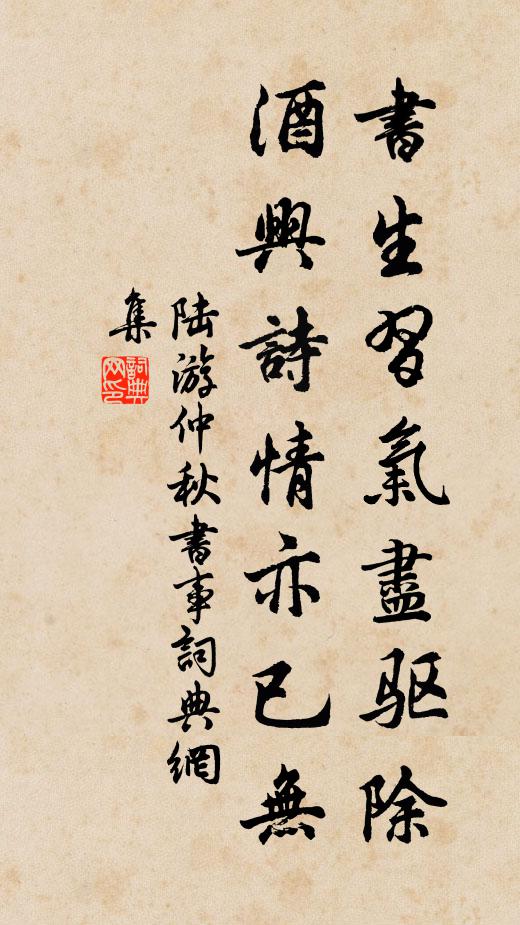 書生習氣盡驱除
酒興詩情亦已無
陆游仲秋書事詞典網
集
詞典
网印